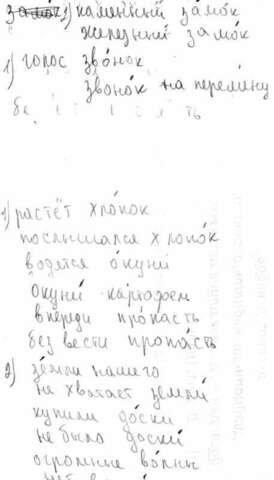 1) каменный за́мок
железный замо́к
1) голос зво́нок
звоно́к на перемену
1) растёт хло́пок
послышался хлопо́к
водятся о́куни
окуни́ картофем
впереди про́пасть
без вести пропа́сть
2) зе́мли нашего
не хватает земли́
купили до́ски
не было доски́
огромные во́лны